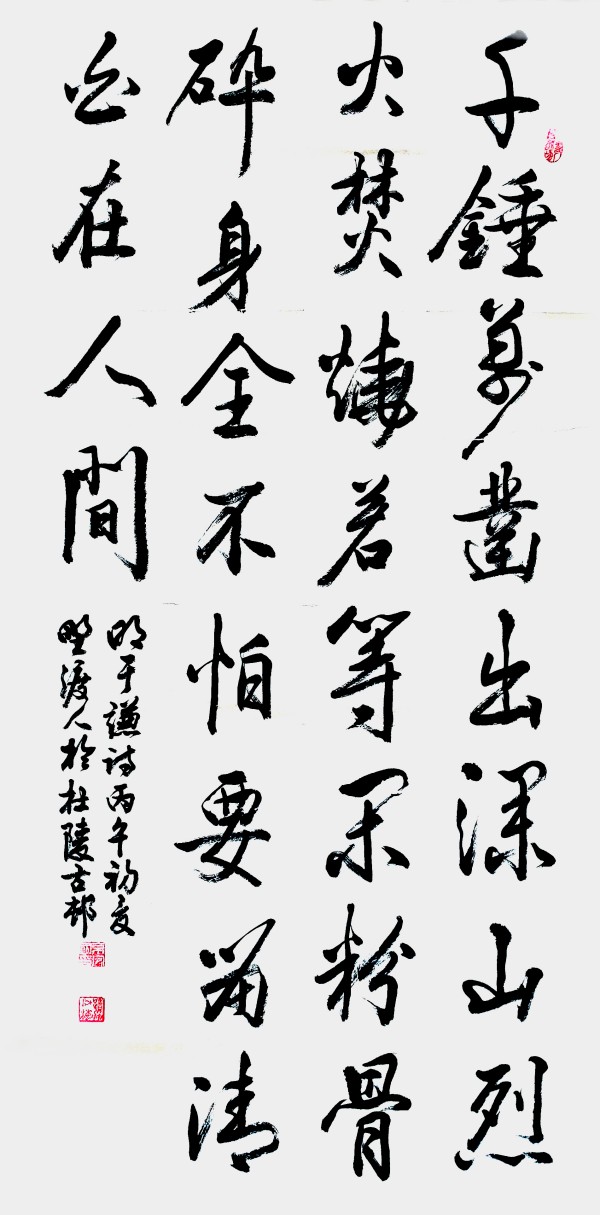 千錘萬凿出深山烈
火焚燒若等閑粉骨
碎身全不怕要留清
白在人間
明于謙詩丙午初夏
野渡人於杜陵古邨